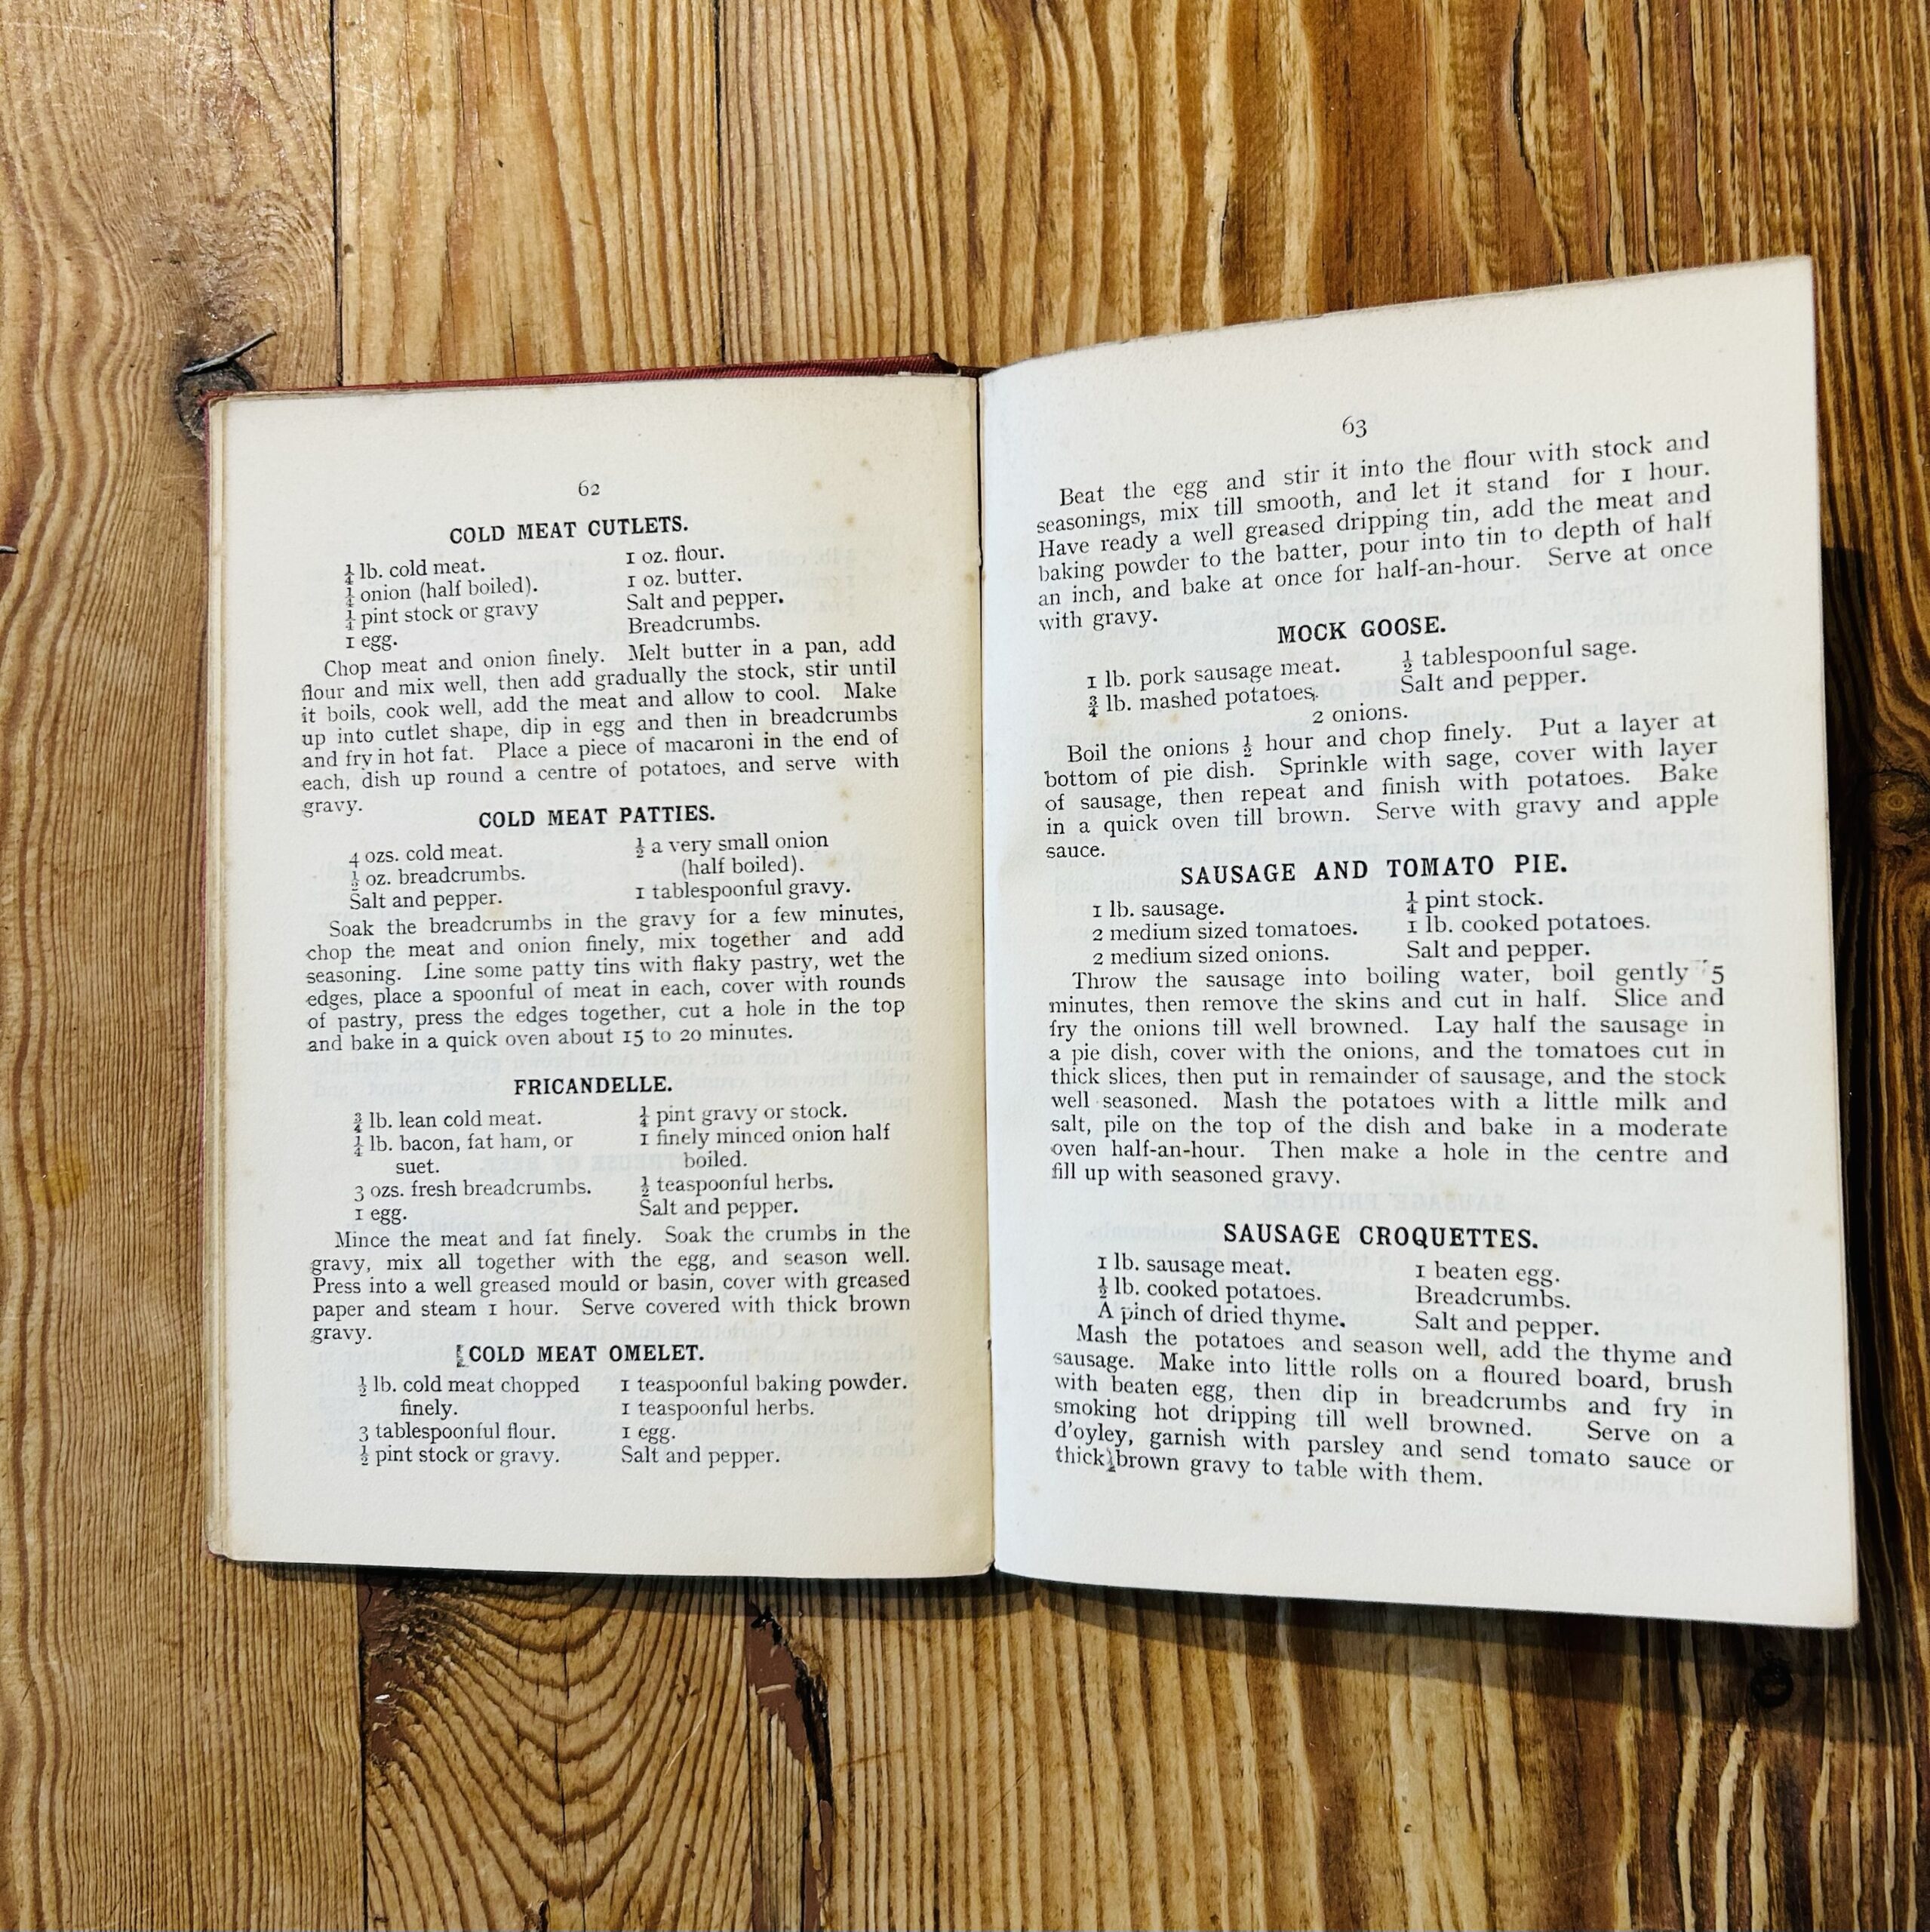 62
COLD MEAT CUTLETS.
¼ lb. cold meat.
¼ onion (half boiled).
¼ pint stock or gravy
1 egg.
1 oz. flour.
1 oz. butter.
Salt and pepper.
Breadcrumbs.
Chop meat and onion finely. Melt butter in a pan, add
flour and mix well, then add gradually the stock, stir until
it boils, cook well, add the meat and allow to cool. Make
up into cutlet shape, dip in egg and then in breadcrumbs
and fry in hot fat. Place a piece of macaroni in the end of
each, dish up round a centre of potatoes, and serve with
gravy.
COLD MEAT PATTIES.
4 ozs. cold meat.
½ oz. breadcrumbs.
Salt and pepper.
½ a very small onion
(half boiled).
1 tablespoonful gravy.
Soak the breadcrumbs in the gravy for a few minutes,
chop the meat and onion finely, mix together and add
seasoning. Line some patty tins with flaky pastry, wet the
edges, place a spoonful of meat in each, cover with rounds
of pastry, press the edges together, cut a hole in the top
and bake in a quick oven about 15 to 20 minutes.
FRICANDELLE.
¾ lb. lean cold meat.
¼ lb. bacon, fat ham, or
suet.
3 ozs. fresh breadcrumbs.
1 egg.
¼ pint gravy or stock.
1 finely minced onion half
boiled.
½ teaspoonful herbs.
Salt and pepper.
Mince the meat and fat finely. Soak the crumbs in the
gravy, mix all together with the egg, and season well.
Press into a well greased mould or basin, cover with greased
paper and steam 1 hour. Serve covered with thick brown
gravy.
COLD MEAT OMELET.
lb. cold meat chopped
finely.
3 tablespoonful flour.
½ pint stock or gravy.
1 teaspoonful baking powder.
1 teaspoonful herbs.
1 egg.
Salt and pepper.
63
Beat the egg and stir it into the flour with stock and
seasonings, mix till smooth, and let it stand for 1 hour.
Have ready a well greased dripping tin, add the meat and
baking powder to the batter, pour into tin to depth of half
an inch, and bake at once for half-an-hour. Serve at once
with gravy.
MOCK GOOSE.
1 lb. pork sausage meat.
¾ lb. mashed potatoes.
½ tablespoonful sage.
Salt and pepper.
2 onions.
Boil the onions ½ hour and chop finely. Put a layer at
bottom of pie dish. Sprinkle with sage, cover with layer
of sausage, then repeat and finish with potatoes. Bake
in a quick oven till brown. Serve with gravy and apple
sauce.
SAUSAGE AND TOMATO PIE.
1 lb. sausage.
2 medium sized tomatoes.
2 medium sized onions.
¼ pint stock.
1 lb. cooked potatoes.
Salt and pepper.
Throw the sausage into boiling water, boil gently 5
minutes, then remove the skins and cut in half. Slice and
fry the onions till well browned. Lay half the sausage in
a pie dish, cover with the onions, and the tomatoes cut in
thick slices, then put in remainder of sausage, and the stock
well seasoned. Mash the potatoes with a little milk and
salt, pile on the top of the dish and bake in a moderate
oven half-an-hour. Then make a hole in the centre and
fill up with seasoned gravy.
SAUSAGE CROQUETTES.
1 lb. sausage meat.
½ lb. cooked potatoes.
A pinch of dried thyme.
1 beaten egg.
Breadcrumbs.
Salt and pepper.
Mash the potatoes and season well, add the thyme and
sausage. Make into little rolls on a floured board, brush
with beaten egg, then dip in breadcrumbs and fry in
smoking hot dripping till well browned. Serve on a
d'oyley, garnish with parsley and send tomato sauce or
thick brown gravy to table with them.